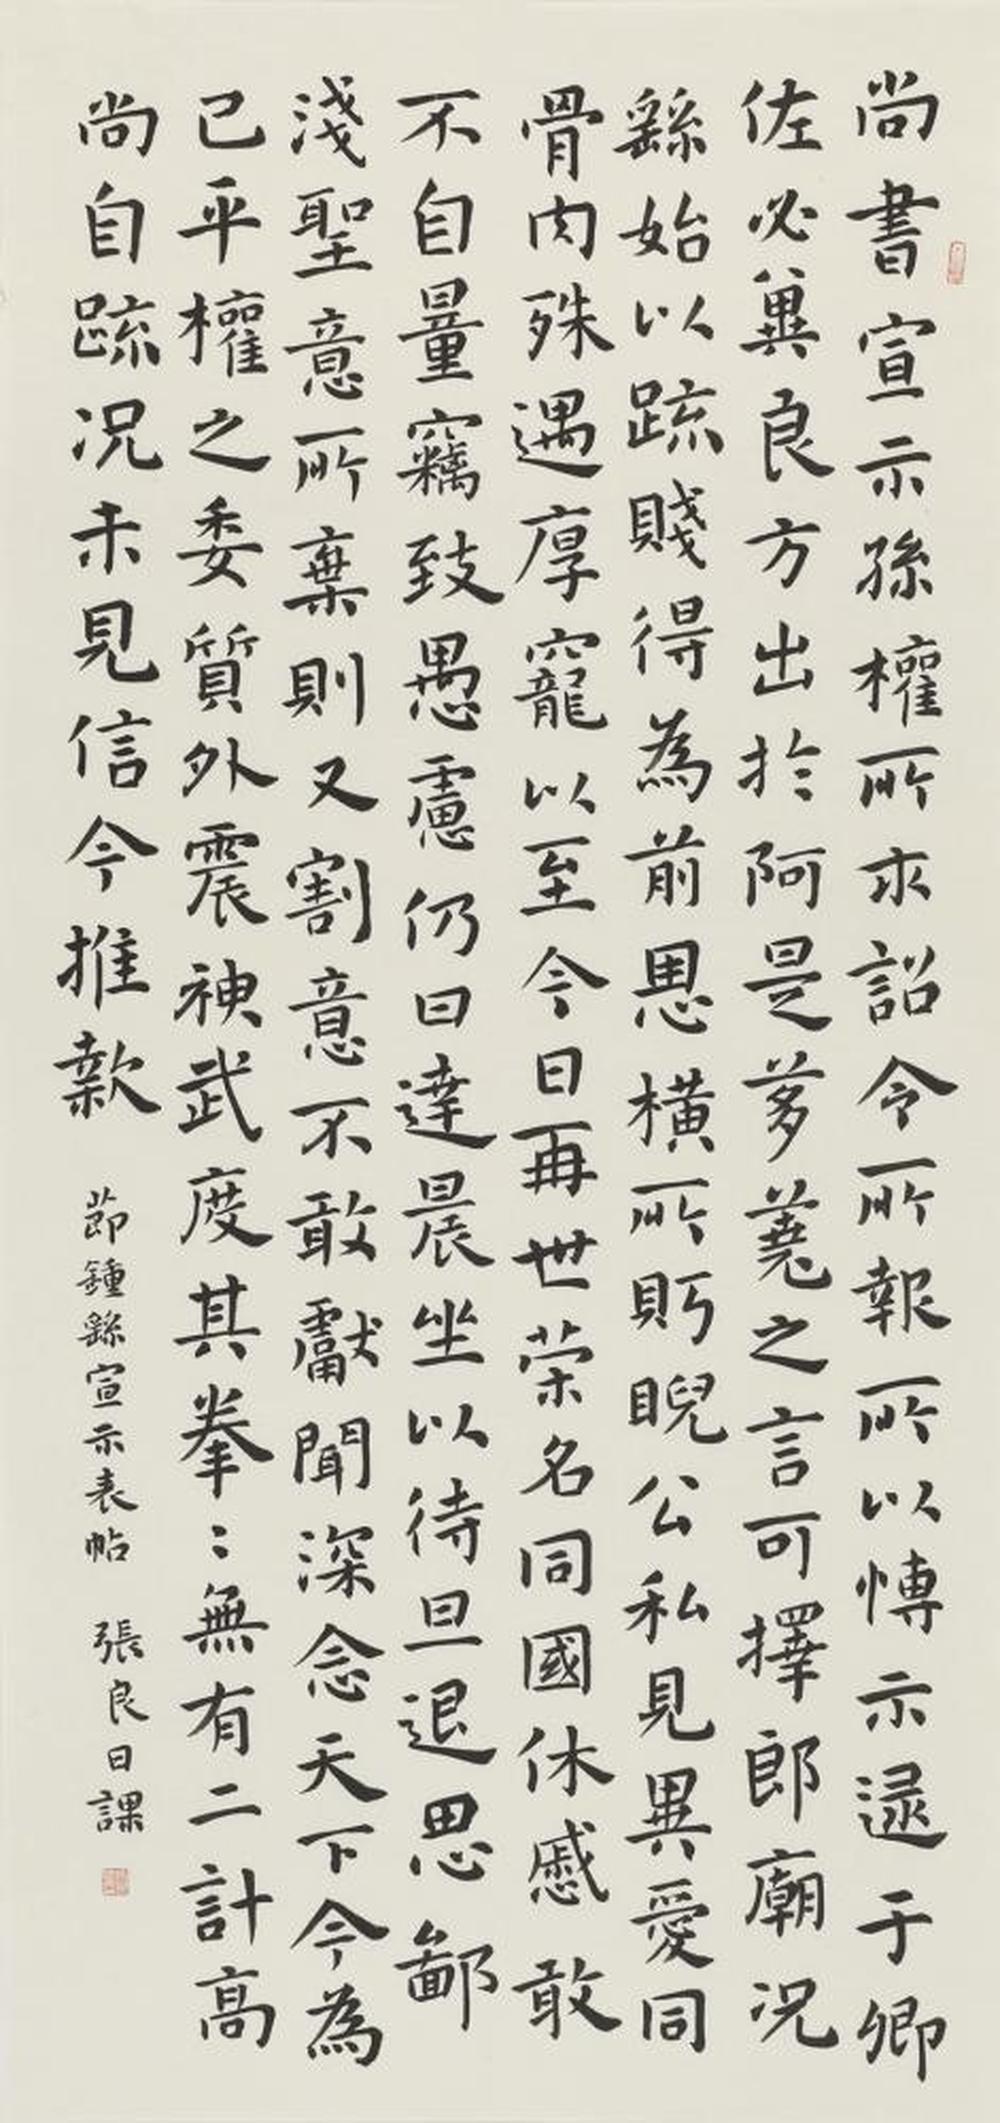 尚書宣示孫權所求詔令所報所以博示逯于卿
佐必冀良方出於阿是芻蕘之言可擇郎廟況
繇始以疏賤得為前恩橫所眄睨公私見異愛同
骨肉殊遇厚寵以至今日再世荣名同國休慼敢
不自量竊致愚慮仍日達晨坐以待旦退思鄙
淺聖意所棄則又割意不敢獻聞深念天下今為
已平權之委質外震神武度其拳〻無有二計高
尚自疏况未見信今推款
節鍾繇宣示表帖 張良日課